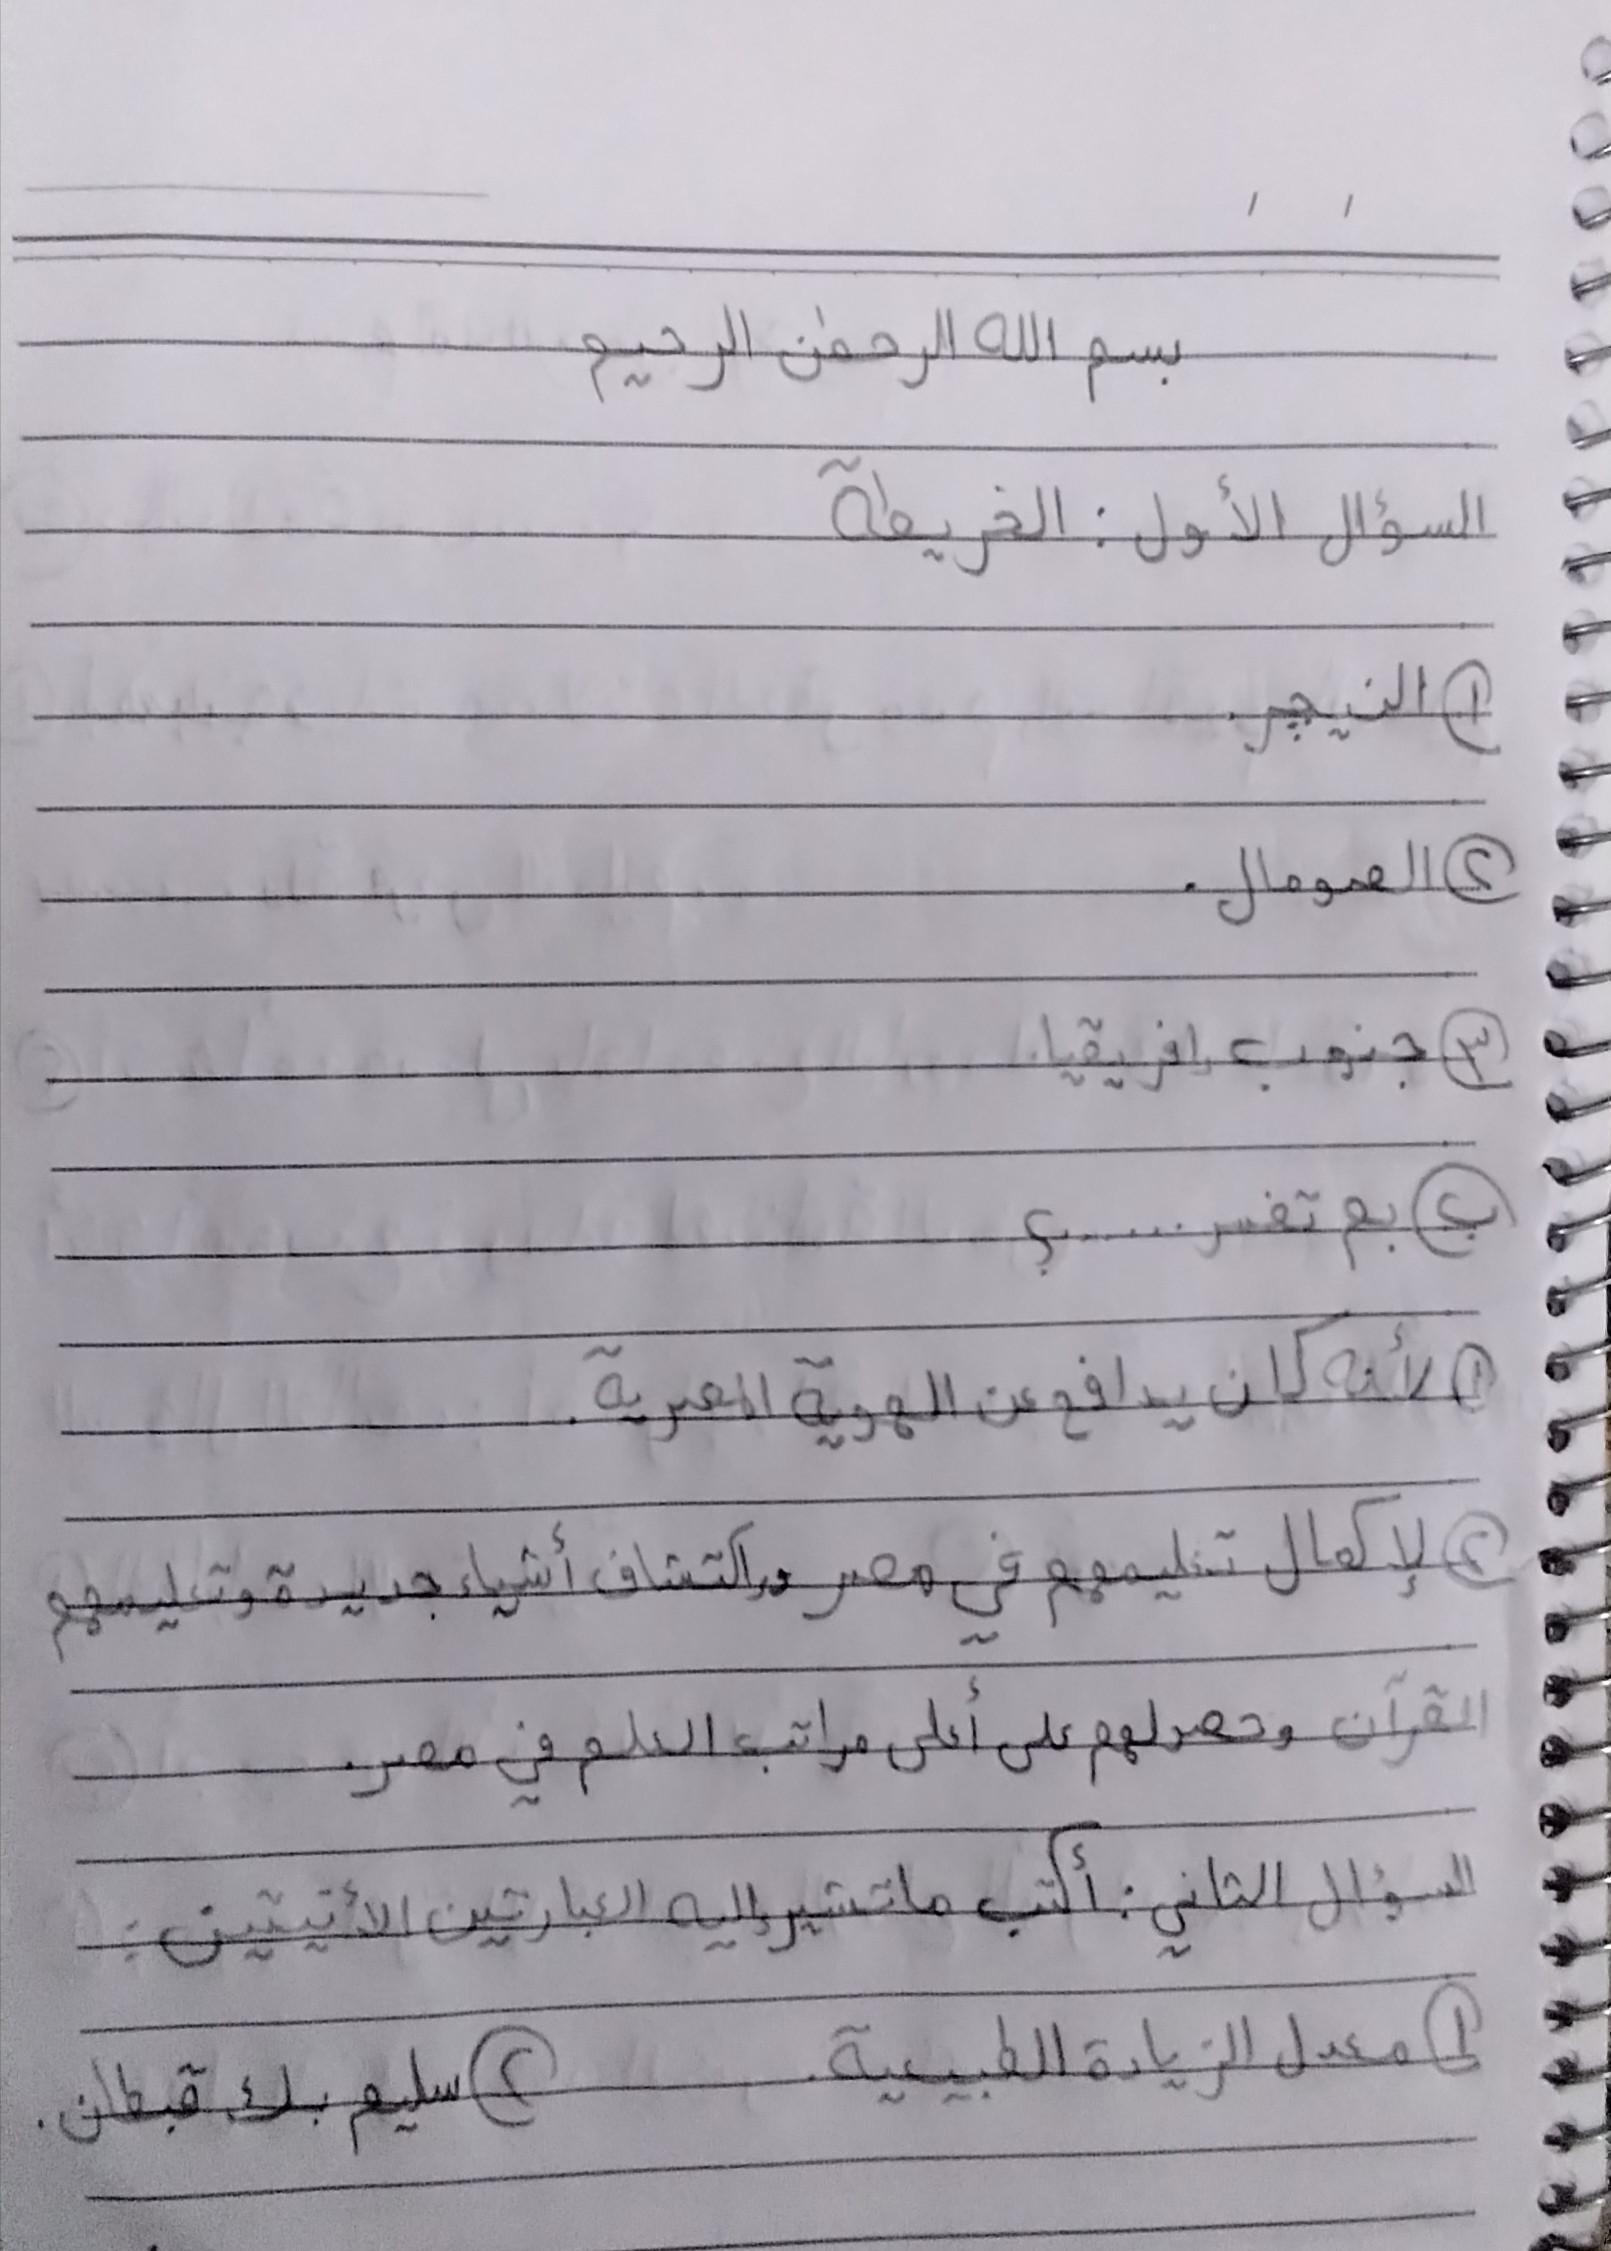 بسم الله الرحمٰن الرحيم
السؤال الأول : الخريطة
① النيجر.
② الصومال.
③ جنوب إفريقيا.
ب بم تفسر......؟
① لأنه كان يدافع عن الهوية المصرية.
② لإكمال تعليمهم في مصر وراكتشاف أشياء جديدة وتعليمهم
القرآن وحصولهم على أعلى مراتب العلم في مصر.
السؤال الثاني : أكتب ماتشير إليه العبارتين الأتيتين :
① معدل الزيادة الطبيعية. ② سليم بك قبطان.